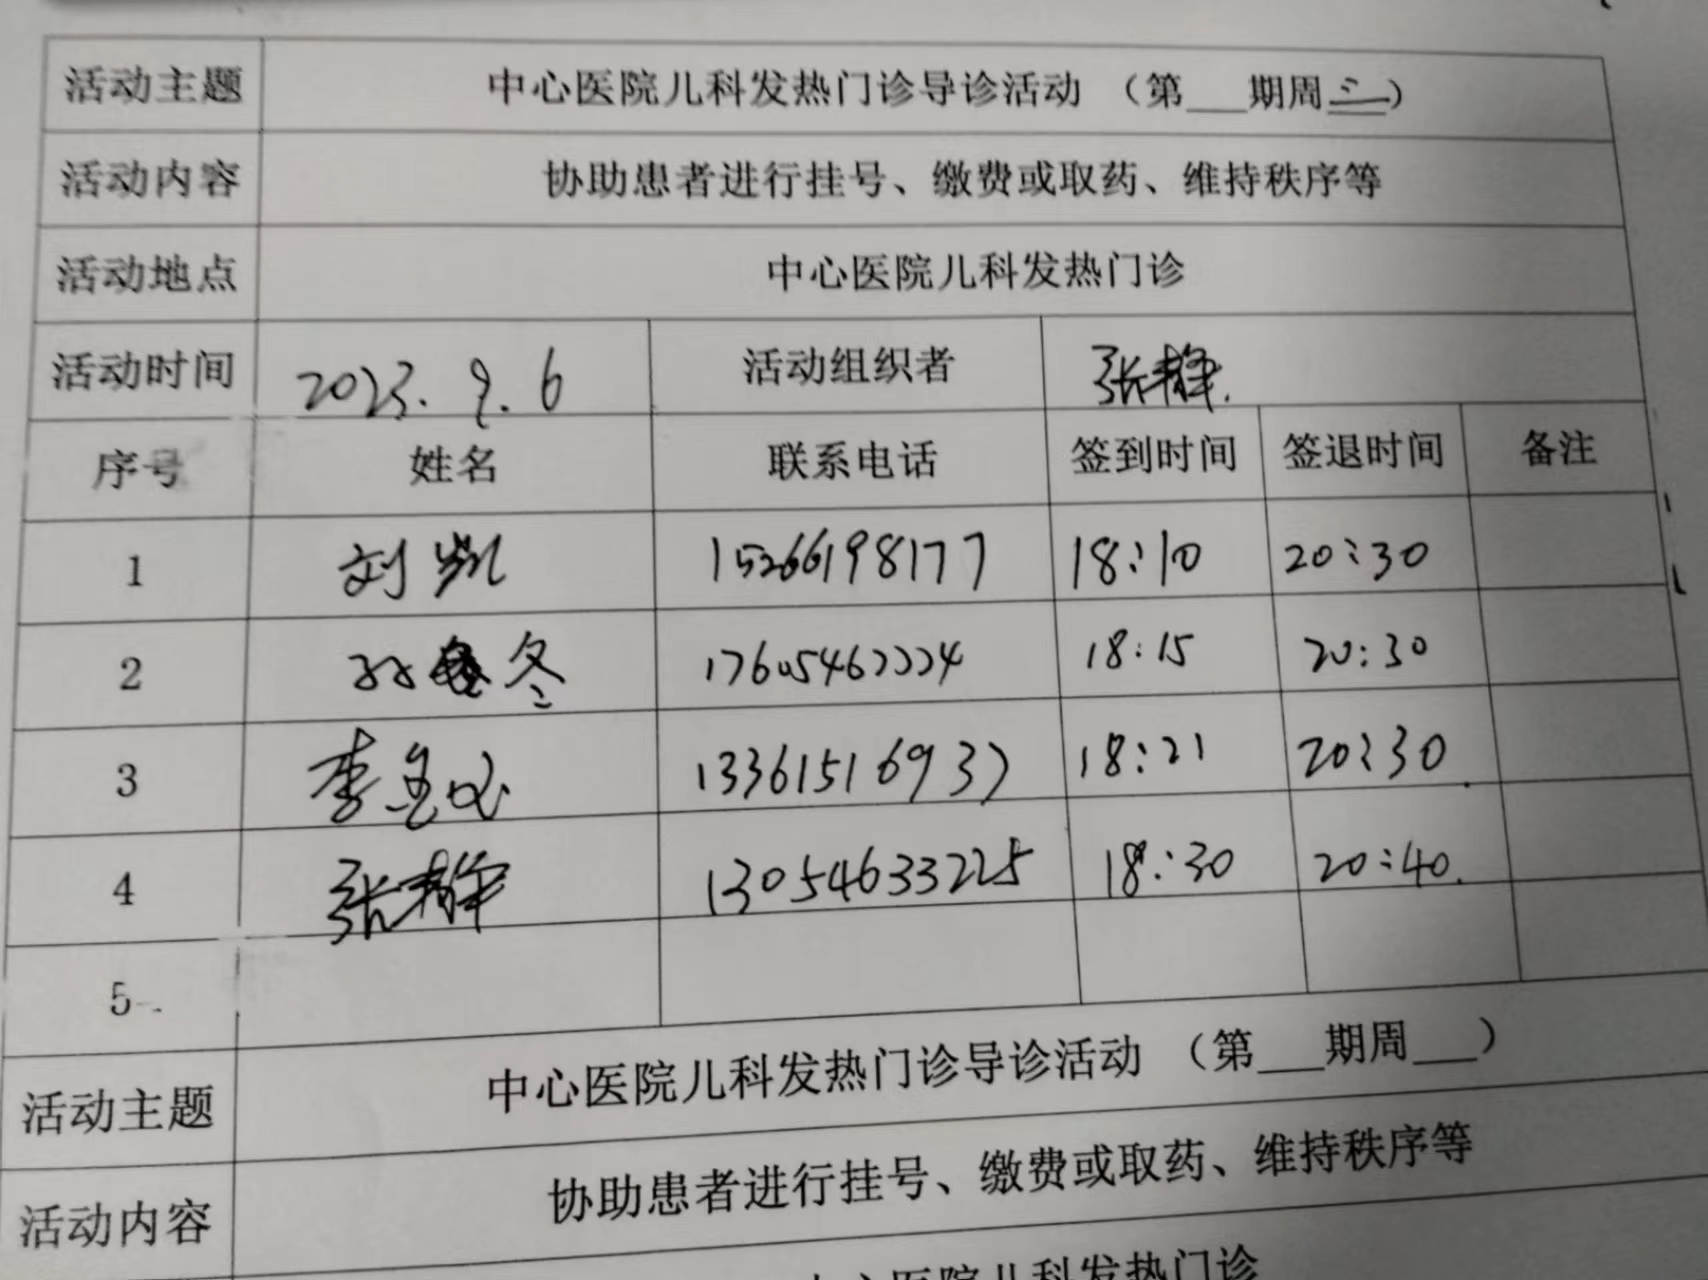 活动主题 中心医院儿科发热门诊导诊活动 （第___期周三）
活动内容 协助患者进行挂号、缴费或取药、维持秩序等
活动地点 中心医院儿科发热门诊
活动时间 2023.9.6 活动组织者 张静
序号 姓名 联系电话 签到时间 签退时间 备注
1 刘凯 15266198177 18:10 20:30
2 孙冬 17605462224 18:15 20:30
3 李 13361516937 18:21 20:30
4 张静 13054633225 18:30 20:40
5
活动主题 中心医院儿科发热门诊导诊活动 （第___期周___）
活动内容 协助患者进行挂号、缴费或取药、维持秩序等
中心医院儿科发热门诊